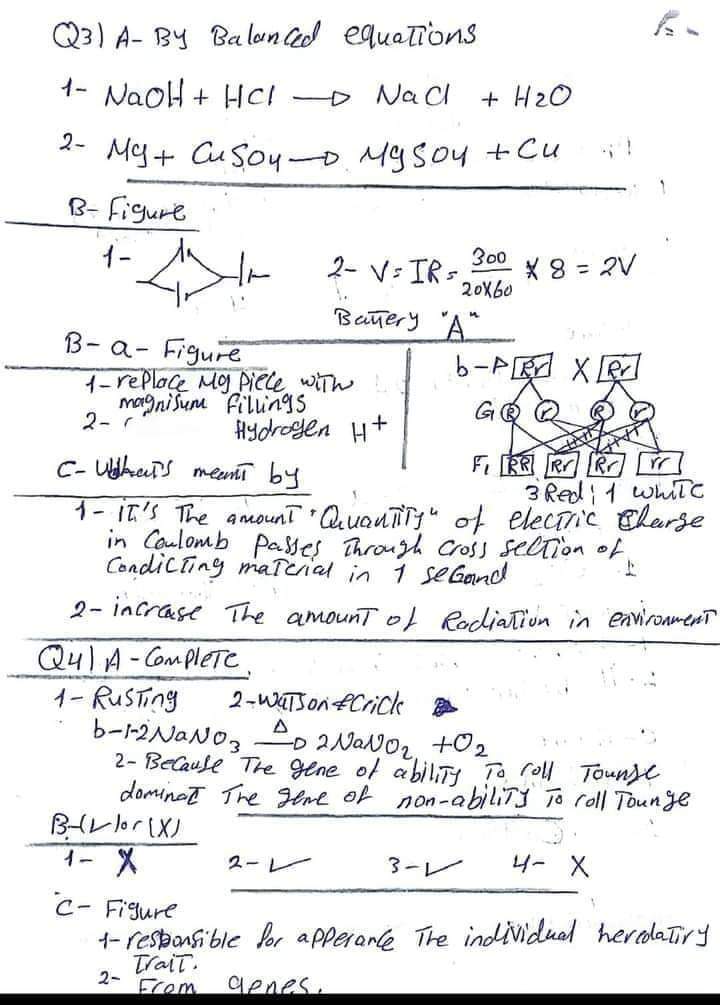 Q3) A- By Balanced equations
1- NaOH + HCl → NaCl + H2O
2- Mg + CuSO4 → MgSO4 + Cu
B- Figure
1-
2- V = IR = 300 / 20X60 X 8 = 2V
Battery "A"
B- a- Figure
1- replace Mg piece with
magnisum fillings
2- Hydrogen H+
b- P Rr X Rr
G R r R r
F1 RR Rr Rr rr
3 Red : 1 white
C- What's meant by
1- it's The amount "Quantity" of electric Charge
in Coulomb Passes Through cross section of
Condicting material in 1 second
2- increase The amount of Radiation in environment
Q4) A- Complete
1- Rusting 2- Watson & Crick
b- 1- 2NaNO3 Δ→ 2NaNO2 + O2
2- Because The gene of ability To roll Tounge
dominat The gene of non-ability To roll Tounge
B- (✓) or (X)
1- X 2- ✓ 3- ✓ 4- X
C- Figure
1- responsible for apperance The individual heredatiry
Trait.
2- From genes.